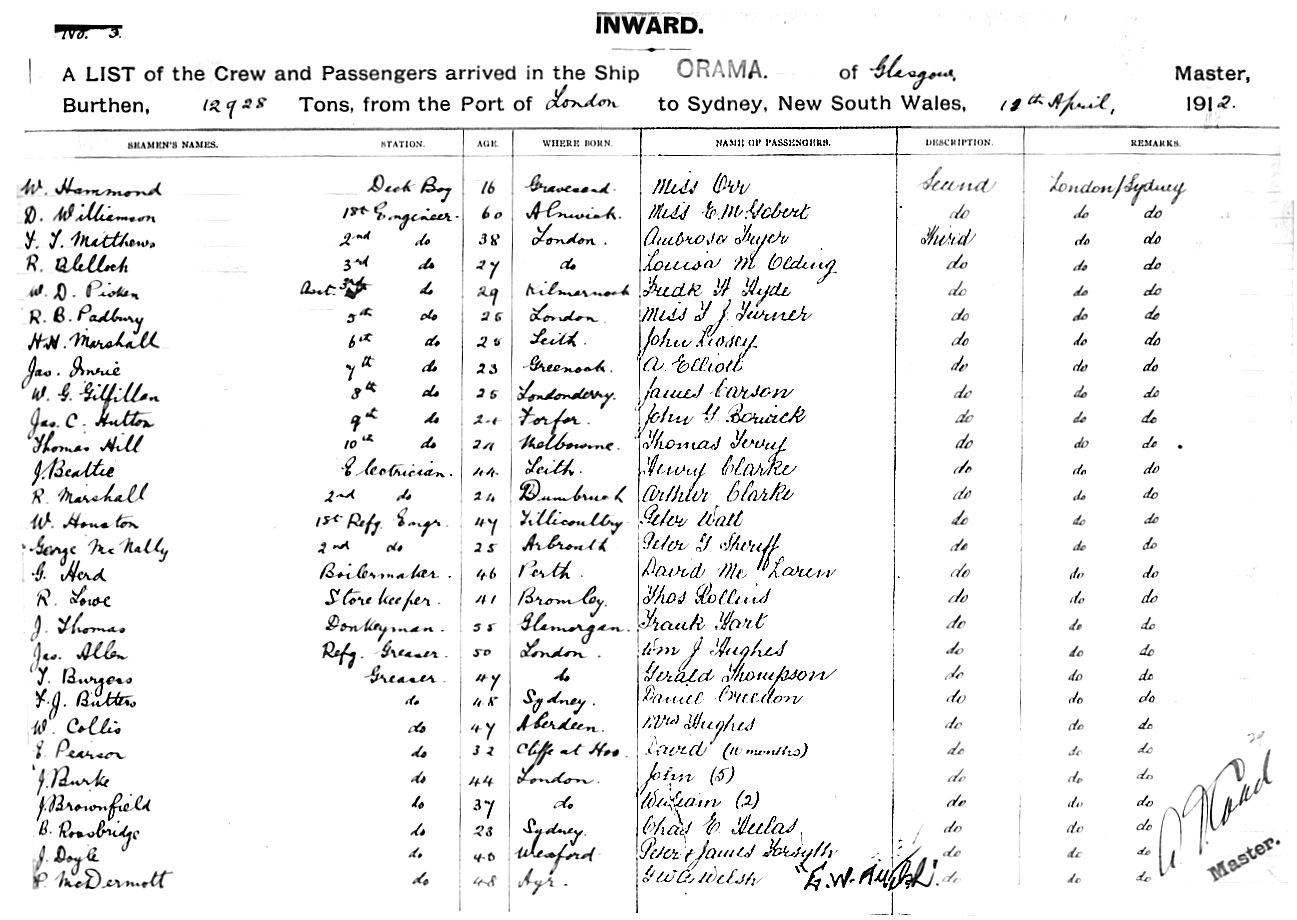 No. 3.
INWARD.
A LIST of the Crew and Passengers arrived in the Ship ORAMA. of Glasgow, Master,
Burthen, 12928 Tons, from the Port of London to Sydney, New South Wales, 12th April, 1912.
SEAMEN'S NAMES. STATION. AGE. WHERE BORN. NAME OF PASSENGERS. DESCRIPTION. REMARKS.
W. Hammond Deck Boy 16 Gravesend. Miss Orr Second London/Sydney
D. Williamson 1st Engineer. 60 Alnwick. Miss E. M. Gobert do do do
F. T. Matthews 2nd do 38 London. Ambrose Fryer Third do do
R. Blelloch 3rd do 27 do Louisa M. Olding do do do
W. D. Picken do 29 Kilmarnock Fredk W Hyde do do do
R. B. Padbury 5th do 25 London. Miss F J. Turner do do do
H. H. Marshall 6th do 25 Leith. John Livsey do do do
Jas. Imrie 7th do 23 Greenock. A. Elliott do do do
W. G. Gilfillan 8th do 25 Londonderry. James Carson do do do
Jas. C. Hutton 9th do 24 Forfar. John G Borwick do do do
Thomas Hill 10th do 24 Melbourne. Thomas Terry do do do
J. Beattie Electrician. 44 Leith. Henry Clarke do do do
R. Marshall 2nd do 24 Dumbruck Arthur Clarke do do do
W. Houston 1st Refg. Engr. 47 Tillicoultry Peter Watt do do do
George McNally 2nd do 25 Arbroath Peter G Sheriff do do do
G. Herd Boilermaker. 46 Perth. David Mc Laren do do do
R. Lowe Storekeeper. 41 Bromley. Thos Rollins do do do
J. Thomas Donkeyman. 55 Glamorgan. Frank Hart do do do
Jas. Allen Refg. Greaser. 50 London. Wm J Hughes do do do
T. Burgess Greaser. 47 do Gerald Thompson do do do
F. J. Butters do 48 Sydney. Daniel Creedon do do do
W. Collis do 47 Aberdeen. Mrs Hughes do do do
E. Pearson do 32 Cliffe at Hoo. David (10 months) do do do
J. Burke do 44 London. John (5) do do do
J. Brownfield do 37 do William (2) do do do
B. Rossbridge do 23 Sydney. Chas E. do do do
J. Doyle do 40 Wexford Peter & James Forsyth do do do
P. McDermott do 48 Ayr. Welsh do do do
Master.